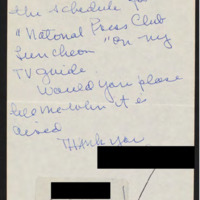 the schedule for
"National Press Club
Luncheon" on my
TV guide.
Would you please
tell me when it is
aired
Thank you